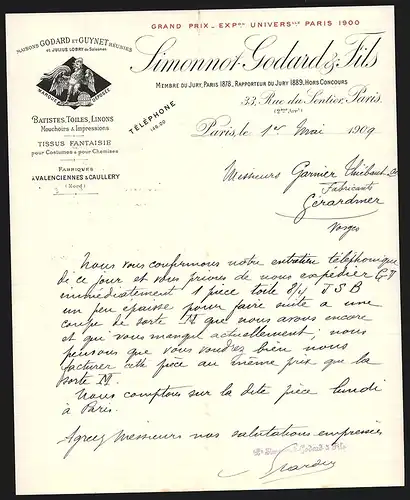 GRAND PRIX_EXPON UNIVERSLLE PARIS 1900
MAISONS GODARD ET GUYNET RÉUNIES
et JULIUS LOBRY du Solesmes
MARQUE DÉPOSÉE
BATISTES, TOILES, LINONS
Mouchoirs & Impressions
TISSUS FANTAISIE
pour Costumes & pour Chemises
FABRIQUES
à VALENCIENNES & CAULLERY
(Nord)
TÉLÉPHONE
Simonnot-Godard & Fils
MEMBRE DU JURY, PARIS 1878, RAPPORTEUR DU JURY 1889, HORS CONCOURS
33, Rue du Sentier, Paris.
Paris, le 1er Mai 1909
Messieurs Garnier Thiébaut
Fabricants
Gérardmer
Vosges
Nous vous confirmons notre entretien téléphonique
de ce jour et vous prions de nous expédier G.V
immédiatement 1 pièce toile 8/4 TSB
un peu épaisse pour faire suite à une
coupe de sorte M que nous avons encore
et qui vous manque actuellement; nous
pensons que vous voudrez bien nous
facturer cette pièce au même prix que la
sorte M.
Nous comptons sur la dite pièce lundi
à Paris.
Agréez Messieurs nos salutations empressées
Godard & Fils